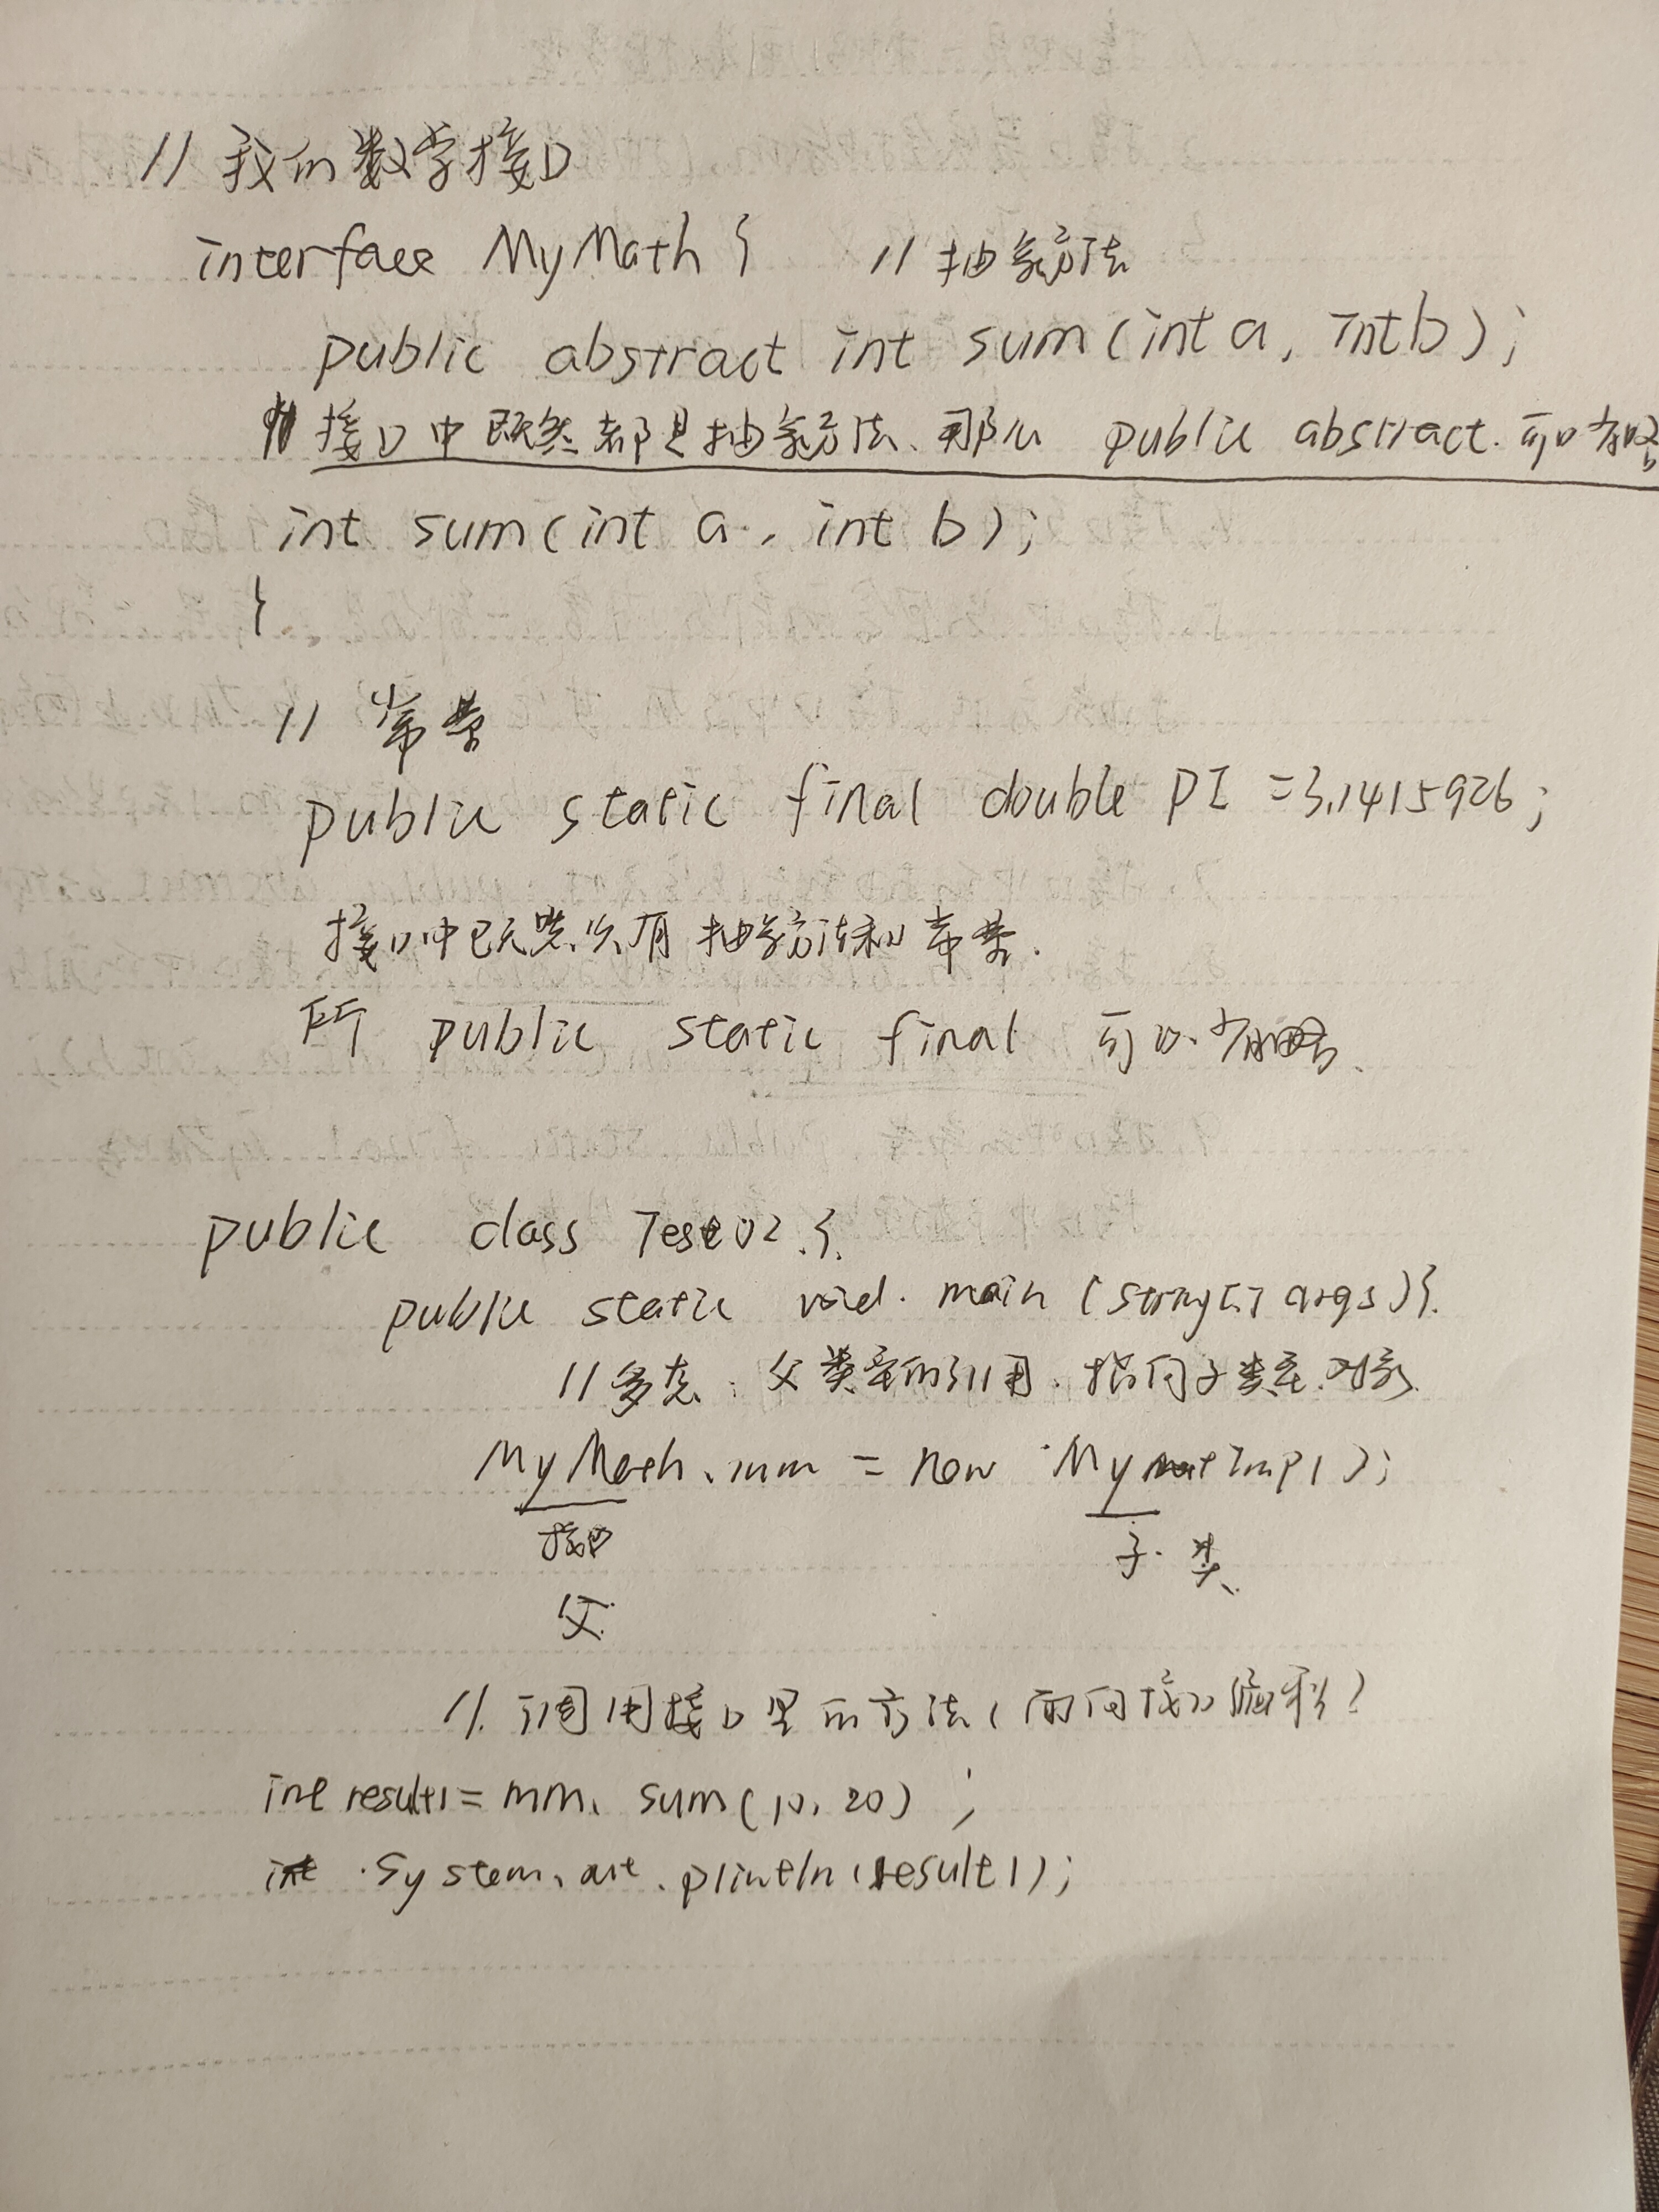 // 我的数学接口
interface MyMath {    // 抽象方法
public abstract int sum(int a, int b);
// 接口中既然都是抽象方法、那么 public abstract 可以省略
int sum(int a, int b);
}
// 常量
public static final double PI =3.1415926;
接口中既然只有抽象方法和常量.
所 public static final 可以省略.
public class Test02 {
public static void main (String[] args){
//多态: 父类型的引用. 指向子类型对象
MyMath mm = new MyMathImpl();
接口    子类
父
// 调用接口里的方法(面向接口编程)
int result1 = mm. sum(10, 20) ;
System.out.println(result1);